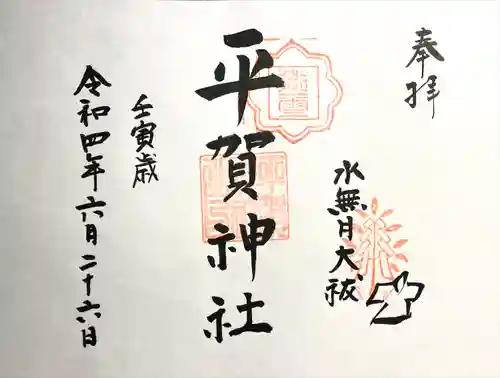 奉拝
水無月大祓
平賀神社
壬寅歳
令和四年六月二十六日